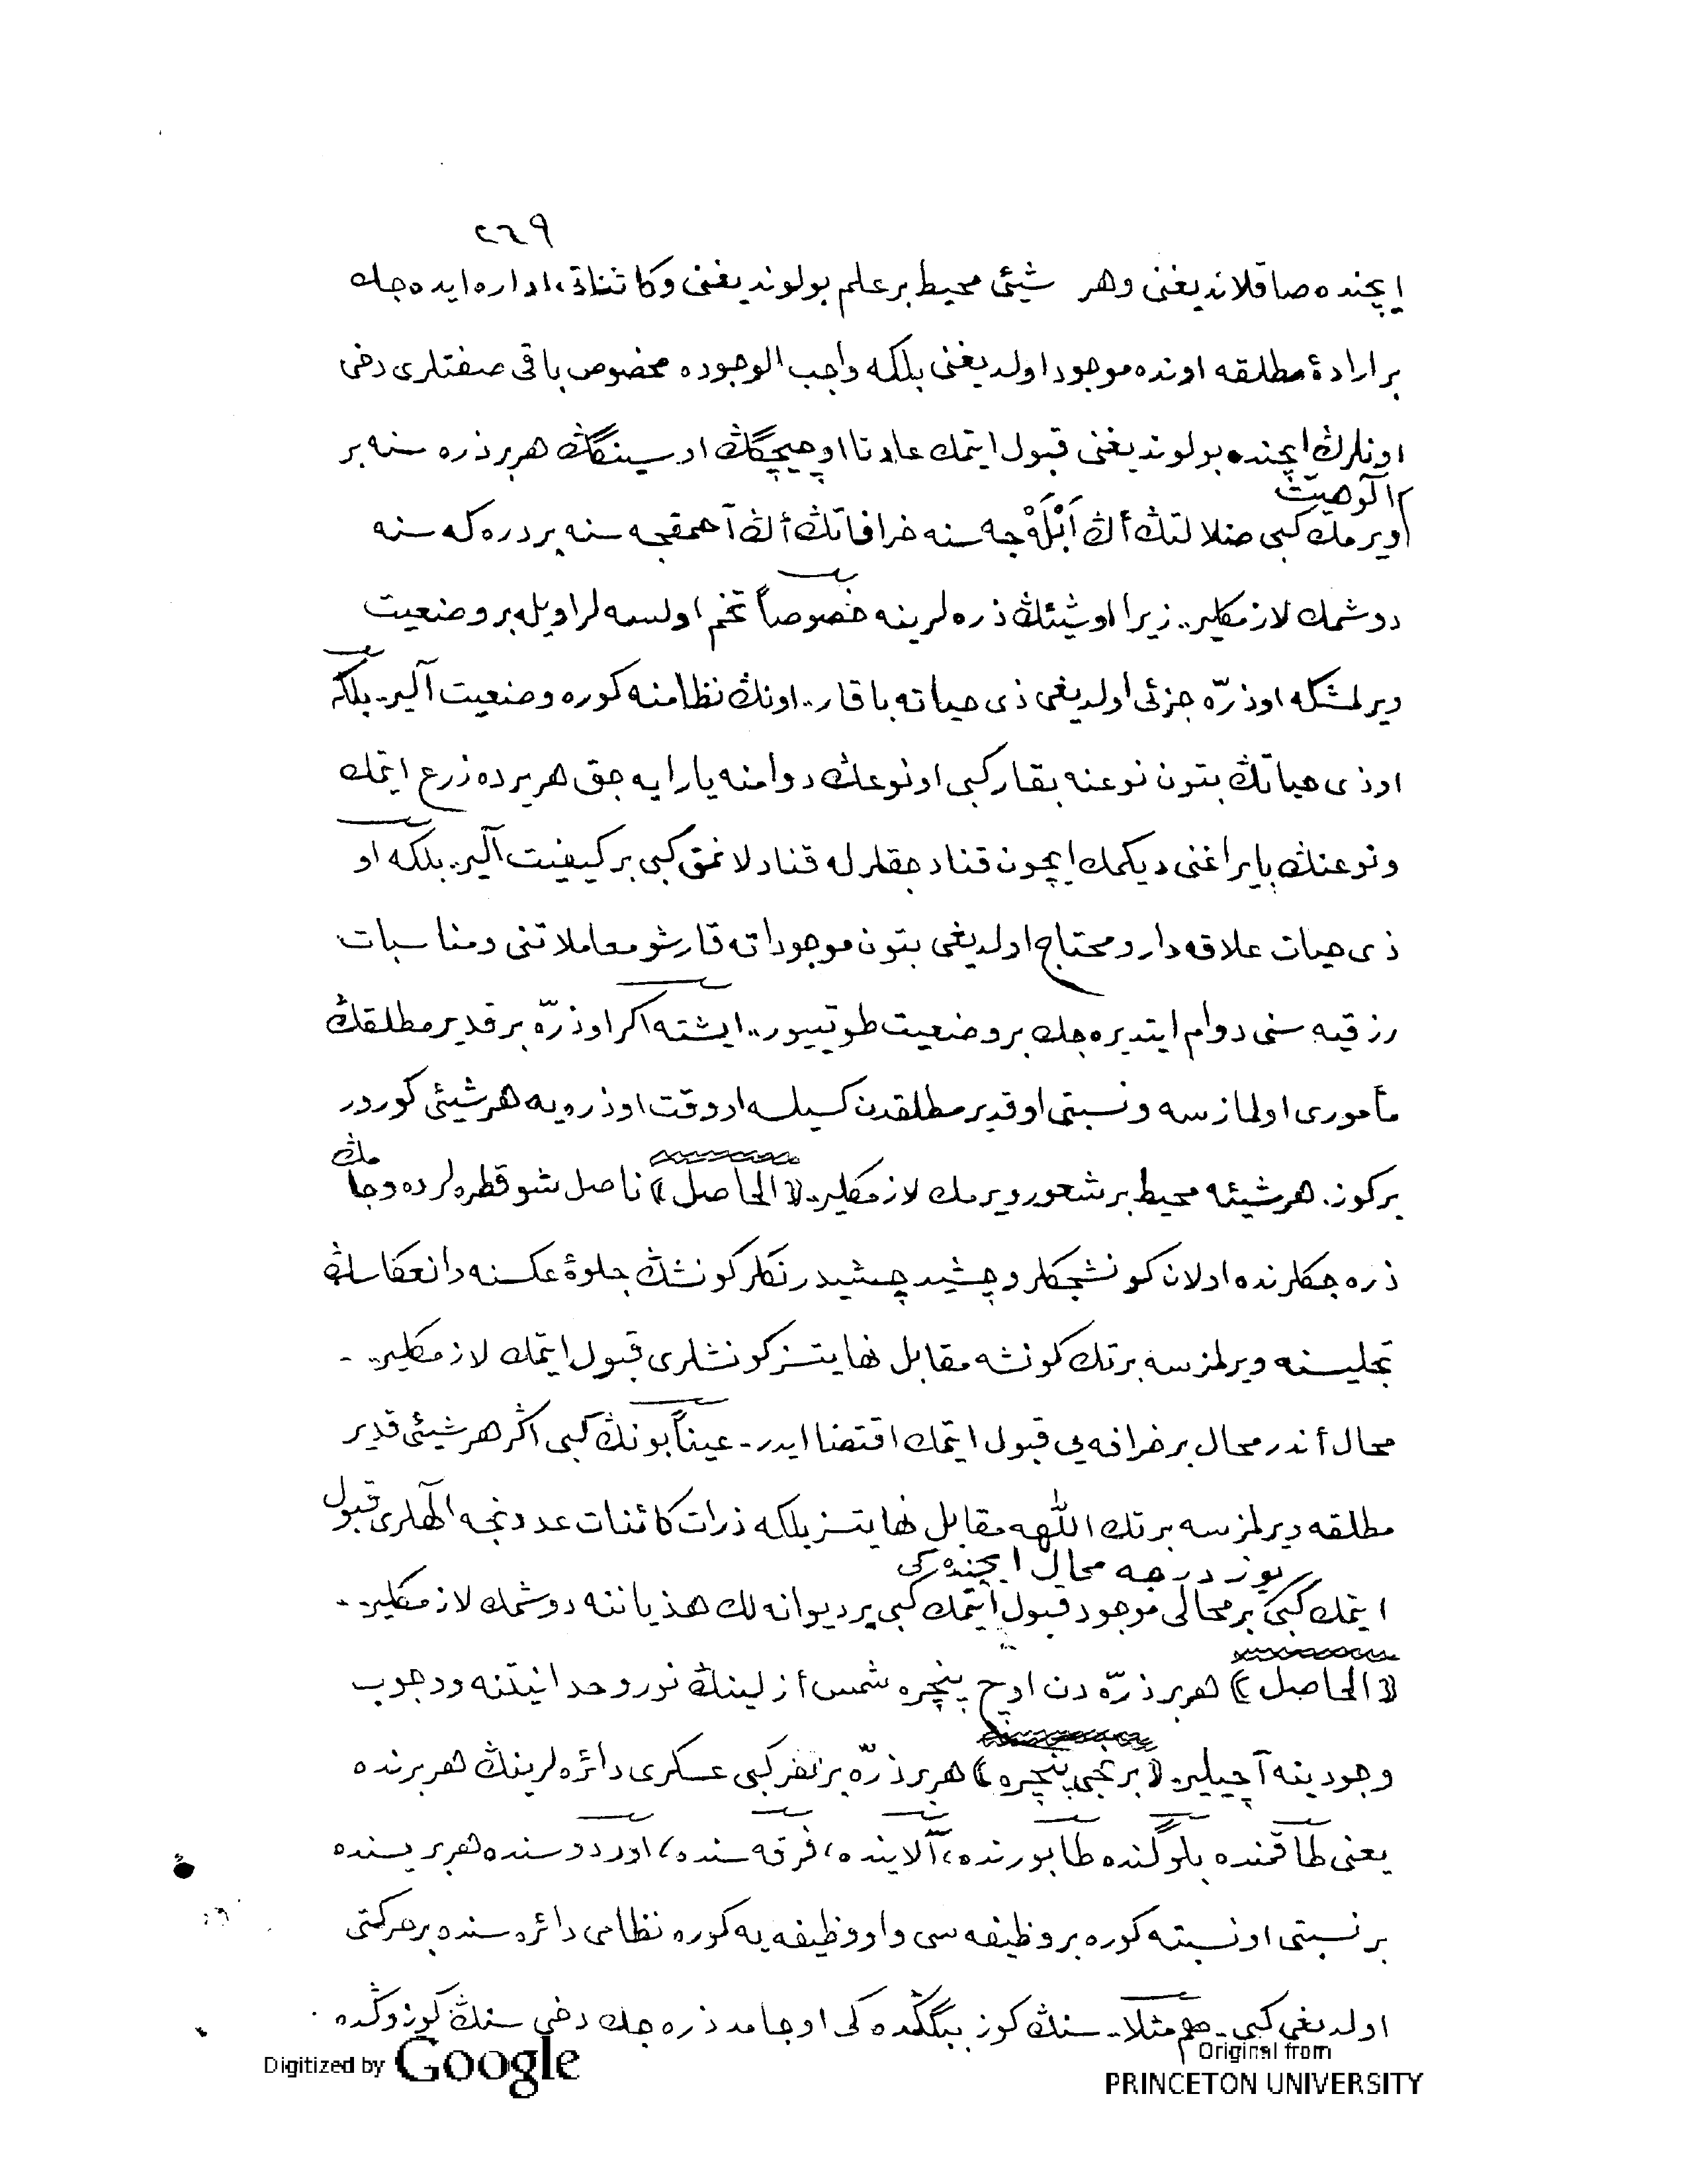 ٢٦٩
ایچنده صاقلاندیغنی وهر شیئی محیط بر علم بولوندیغنی وكائناتی، اداره ایده جك
بر ارادۀ مطلقه اونده موجود اولدیغنی بلكه واجب الوجوده مخصوص باقی صفتلری دخی
اونلرڭ ایچنده بولوندیغنی قبول ایتمك عادتا او چیچگڭ او سینگڭ هر بر ذره سنه بر
الوهیت
ویرمك كبی ضلالتڭ أڭ اَبْلَهْ جه سنه خرافاتڭ أڭ آحمقجه سنه بر دره كه سنه
دوشمك لازمكلیر.. زیرا او شیئڭ ذره لرینه خصوصاً تخم اولسه لر اویله بر وضعیت
ویرلمشكه او ذرّه جزئی اولدیغی ذی حیاته باقار.. اونڭ نظامنه كوره وضعیت آلیر.. بلكه
او ذی حیاتڭ بتون نوعنه بقار كبی او نوعڭ دوامنه یارایه جق هر یرده زرع ایتمك
و نوعنڭ بایراغنی دیكمك ایچون قنادجقلرله قنادلانمق كبی بر كیفیت آلیر.. بلكه او
ذی حیات علاقه دار و محتاج اولدیغی بتون موجوداته قارشو معاملاتنی و مناسبات
رزقیه سنی دوام ایتدیره جك بر وضعیت طوتییور.. ایشته اكر او ذرّه بر قدیر مطلقڭ
مأموری اولمازسه و نسبتی او قدیر مطلقدن كسیلسه او وقت او ذره یه هر شیئی كورور
بر كوز. هر شیئه محیط بر شعور ویرمك لازمكلیر.. ﴿الحاصل﴾ ناصل شو قطره لرده و جامڭ
ذره جكلرنده اولان كونشجكلر و چشید چشید رنكلر كونشڭ جلوۀ عكسنه و انعكاسنڭ
تجلیسنه ویرلمزسه بر تك كونشه مقابل نهایتسز كونشلری قبول ایتمك لازمكلیر.. -
محال أندر محال بر خرافه یی قبول ایتمك اقتضا ایدر - عیناً بونڭ كبی اگر هر شیئی قدیر
مطلقه ویرلمزسه بر تك اللهه مقابل نهایتسز بلكه ذرات كائنات عددنجه الٓهلری قبول
یوز درجه محال ایچنده كی
ایتمك كبی بر محالی موجود قبول ایتمك كبی بر دیوانه لك هذیاننه دوشمك لازمكلیر.. -
﴿الحاصل﴾ هر بر ذرّه دن اوچ پنچره شمس أزلینڭ نور وحدانیتنه و وجوب
وجودینه آچیلیر. ﴿برنجی پنچره﴾ هر بر ذرّه بر نفر كبی عسكری دائره لرینڭ هر برنده
یعنی طاقمنده بلوگنده طابورنده، آلاینده، فرقه سنده، اوردوسنده هر بریسنده
بر نسبتی او نسبته كوره بر وظیفه سی و او وظیفه یه كوره نظامی دائره سنده بر حركتی
اولدیغی كبی - هم مثلا - سنڭ كوز ببگڭده كی او جامد ذره جك دخی سنڭ كوزوڭده
Digitized by Google
Original from
PRINCETON UNIVERSITY